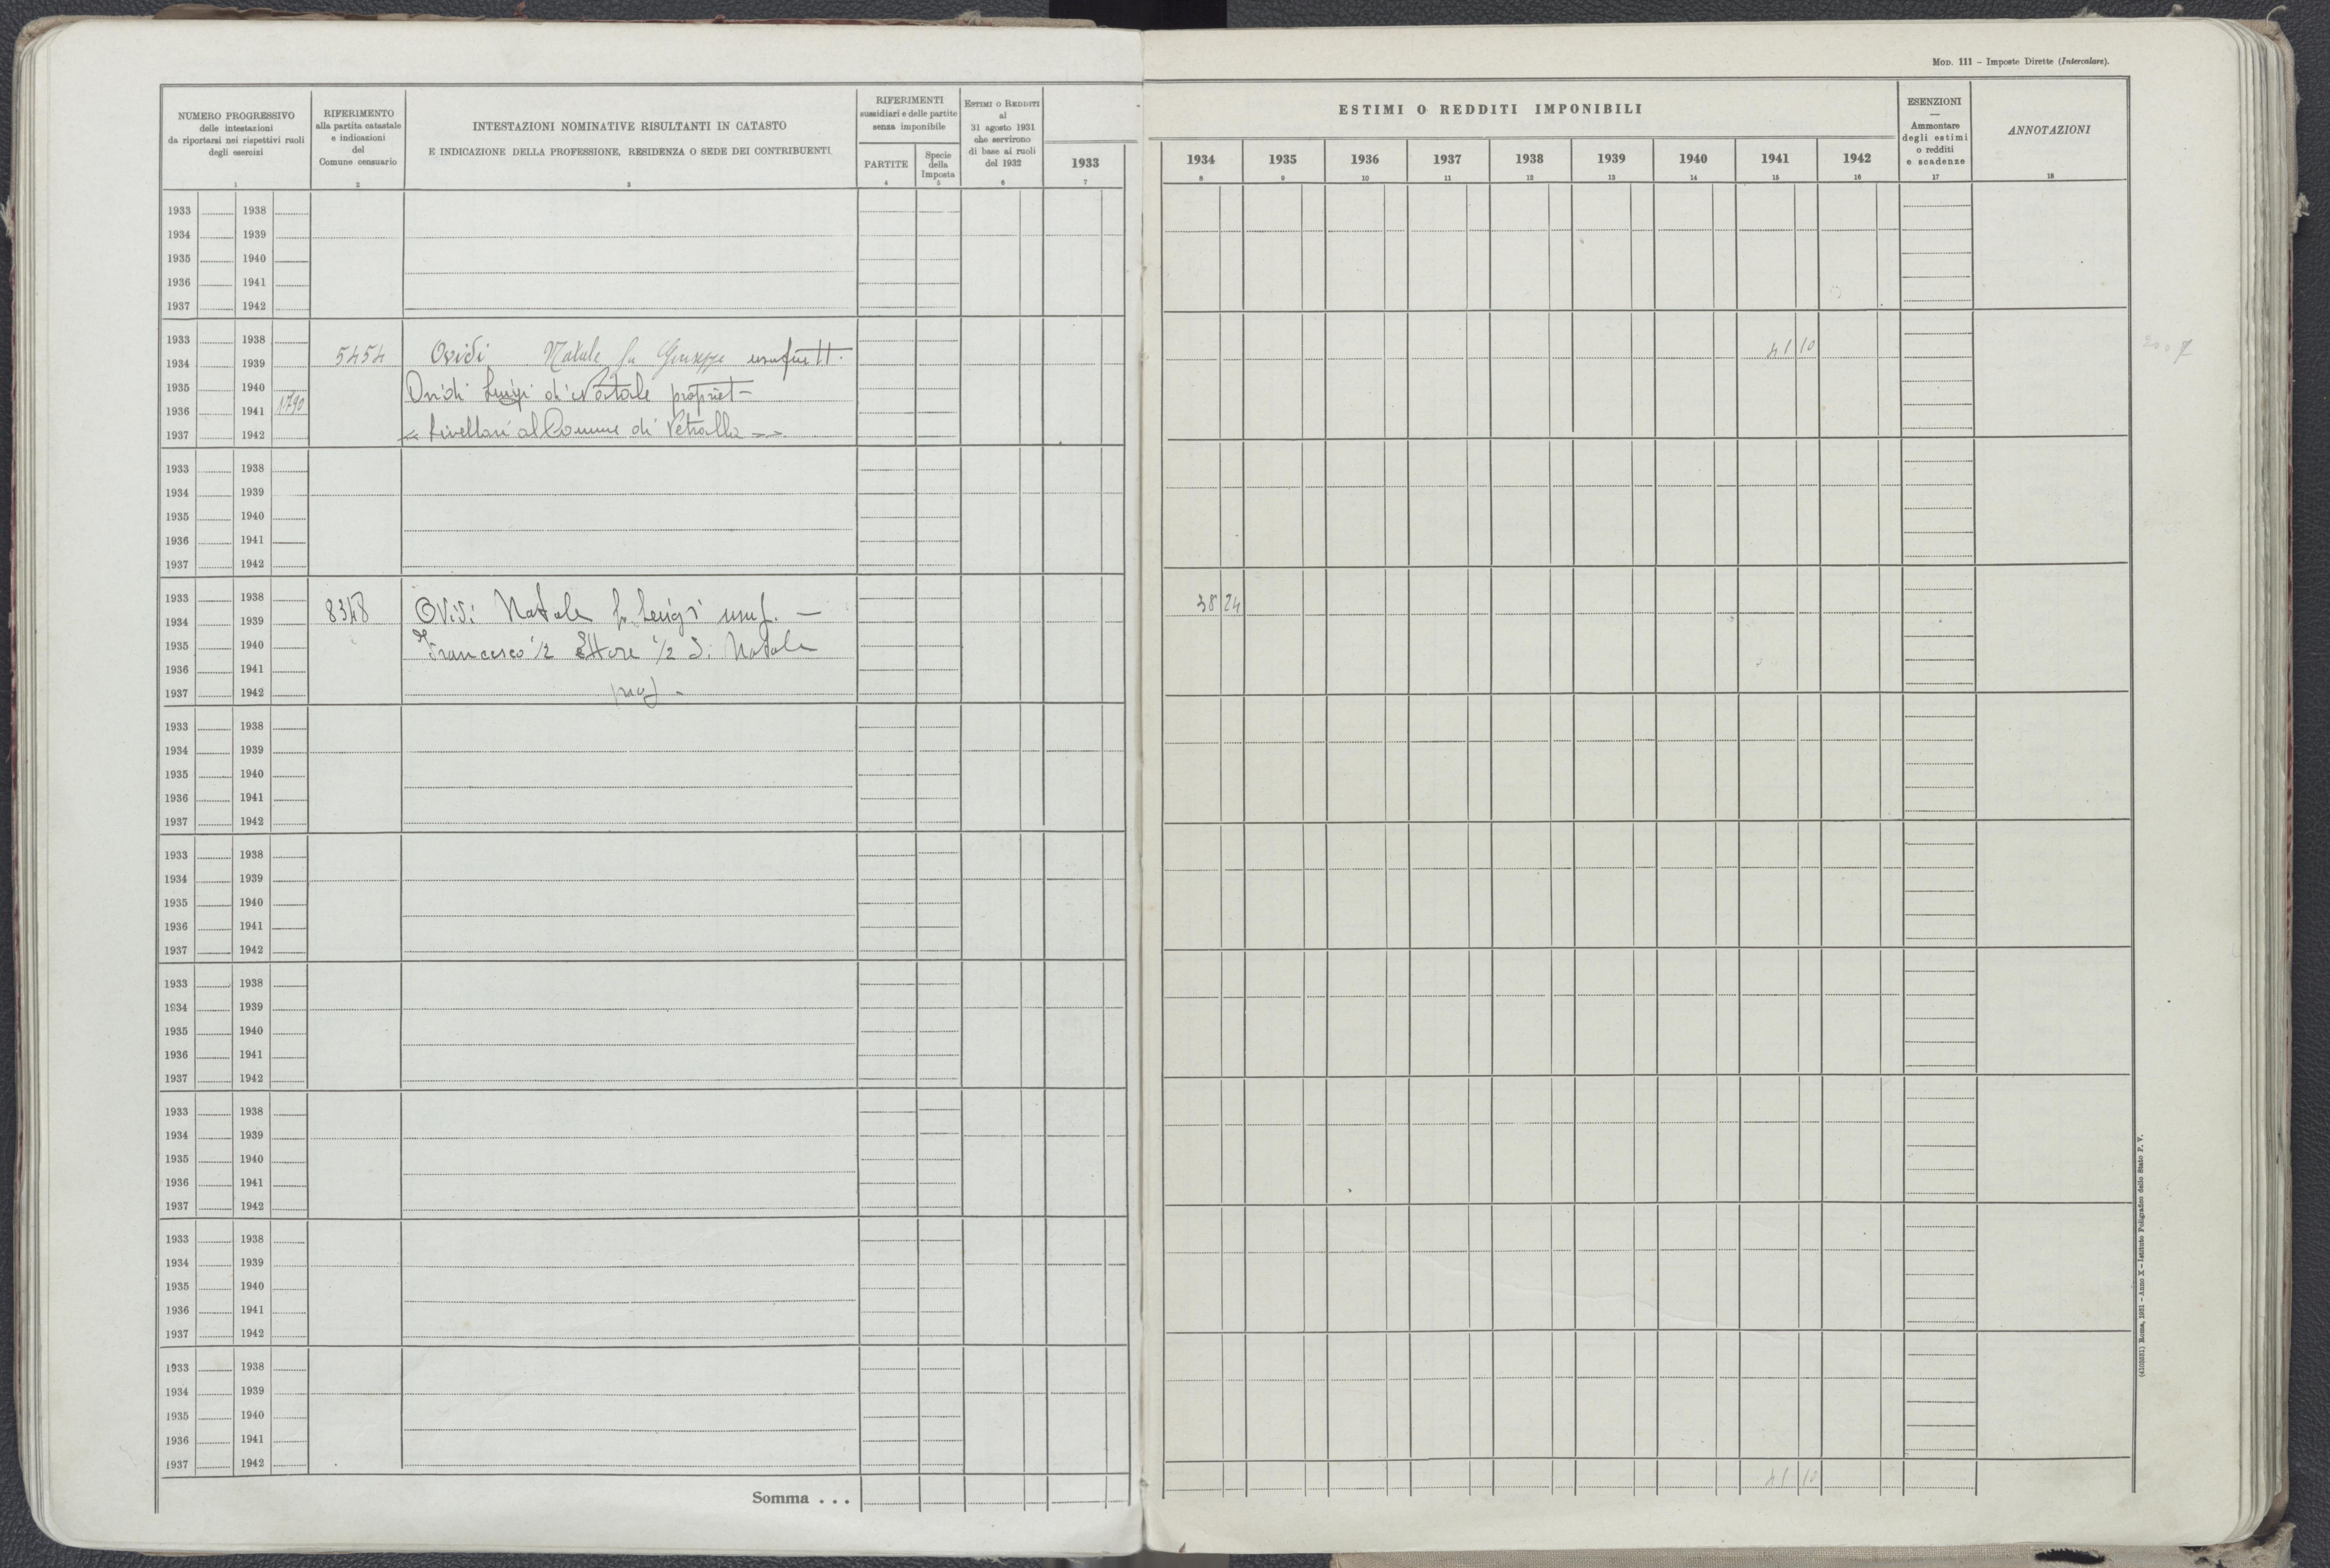 MOD. 111 – Imposte Dirette (Intercalare).
NUMERO PROGRESSIVO
delle intestazioni
da riportarsi nei rispettivi ruoli
degli esercizi
1
RIFERIMENTO
alla partita catastale
e indicazioni
del
Comune censuario
2
INTESTAZIONI NOMINATIVE RISULTANTI IN CATASTO
E INDICAZIONE DELLA PROFESSIONE, RESIDENZA O SEDE DEI CONTRIBUENTI
3
RIFERIMENTI
sussidiari e delle partite
senza imponibile
PARTITE
4
Specie
della
Imposta
5
ESTIMI O REDDITI
al
31 agosto 1931
che servirono
di base ai ruoli
del 1932
6
1933
7
ESTIMI O REDDITI IMPONIBILI
1934 1935 1936 1937 1938 1939 1940 1941 1942
8 9 10 11 12 13 14 15 16
ESENZIONI
—
Ammontare
degli estimi
o redditi
e scadenze
17
ANNOTAZIONI
18
1933 1938
1934 1939
1935 1940
1936 1941
1937 1942
1933 1938
1934 1939 5454 Ovidi Natale fu Giuseppe usufrutt. 41 10
1935 1940 Ovidi Luigi di Natale propriet –
1936 1941 1790
1937 1942 Livellari al Comune di Vetralla
1933 1938
1934 1939
1935 1940
1936 1941
1937 1942
1933 1938
1934 1939 8348 Ovidi Natale fu Luigi usuf. — 38 24
1935 1940 Francesco 1/2 Ettore 1/2 di Natale
1936 1941
1937 1942
1933 1938
1934 1939
1935 1940
1936 1941
1937 1942
1933 1938
1934 1939
1935 1940
1936 1941
1937 1942
1933 1938
1934 1939
1935 1940
1936 1941
1937 1942
1933 1938
1934 1939
1935 1940
1936 1941
1937 1942
1933 1938
1934 1939
1935 1940
1936 1941
1937 1942
1933 1938
1934 1939
1935 1940
1936 1941
1937 1942
Somma . . . 41 10